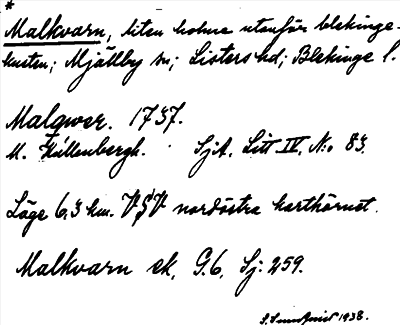 *
Malkvarn, liten holme utanför blekinge-
kusten; Mjällby sn; Listers hd; Blekinge l.
Malqwer. 1737.
M. Källenbergh. SjA. Litt IV. No 83.
Läge 6,3 km. VSV nordöstra karthörnet.
Malkvarn ek. G.6, Sj: 259.
1938.